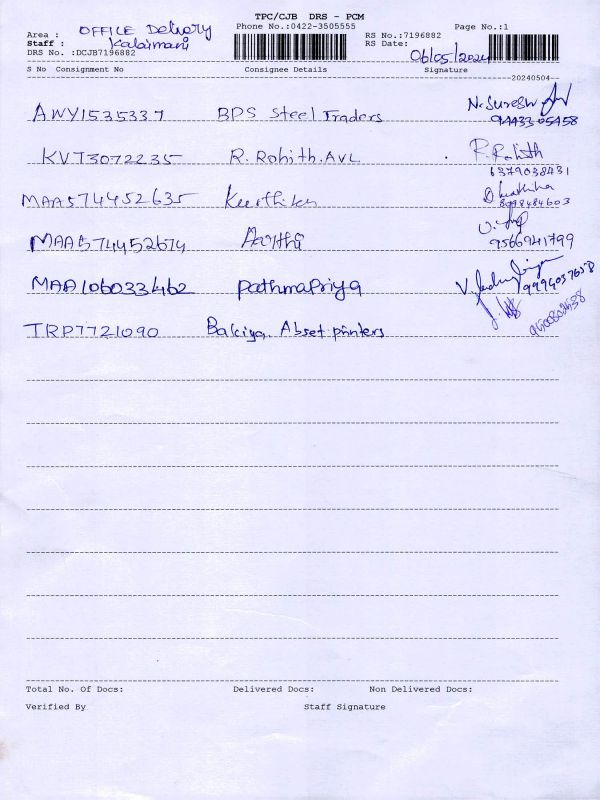 TPC/CJB DRS - PCM
Phone No.:0422-3505555 Page No.:1
Area : OFFICE Delivery
Staff : Kalaimani
DRS No. :DCJB7196882
RS No.:7196882
RS Date: 06/05/2024
S No Consignment No Consignee Details Signature
20240504
AWY1535337 BPS Steel Traders N.Suresh
9443305458
KVT3072235 R. Rohith. AVL R.Rohith
6379038431
MAA574452635 Keerthika
8098484603
MAA574452674 Aarthi
9566941799
MAA106033462 PathmaPriya
9994037658
TRP7721090 Bakiya, Abset printers
Total No. Of Docs: Delivered Docs: Non Delivered Docs:
Verified By Staff Signature